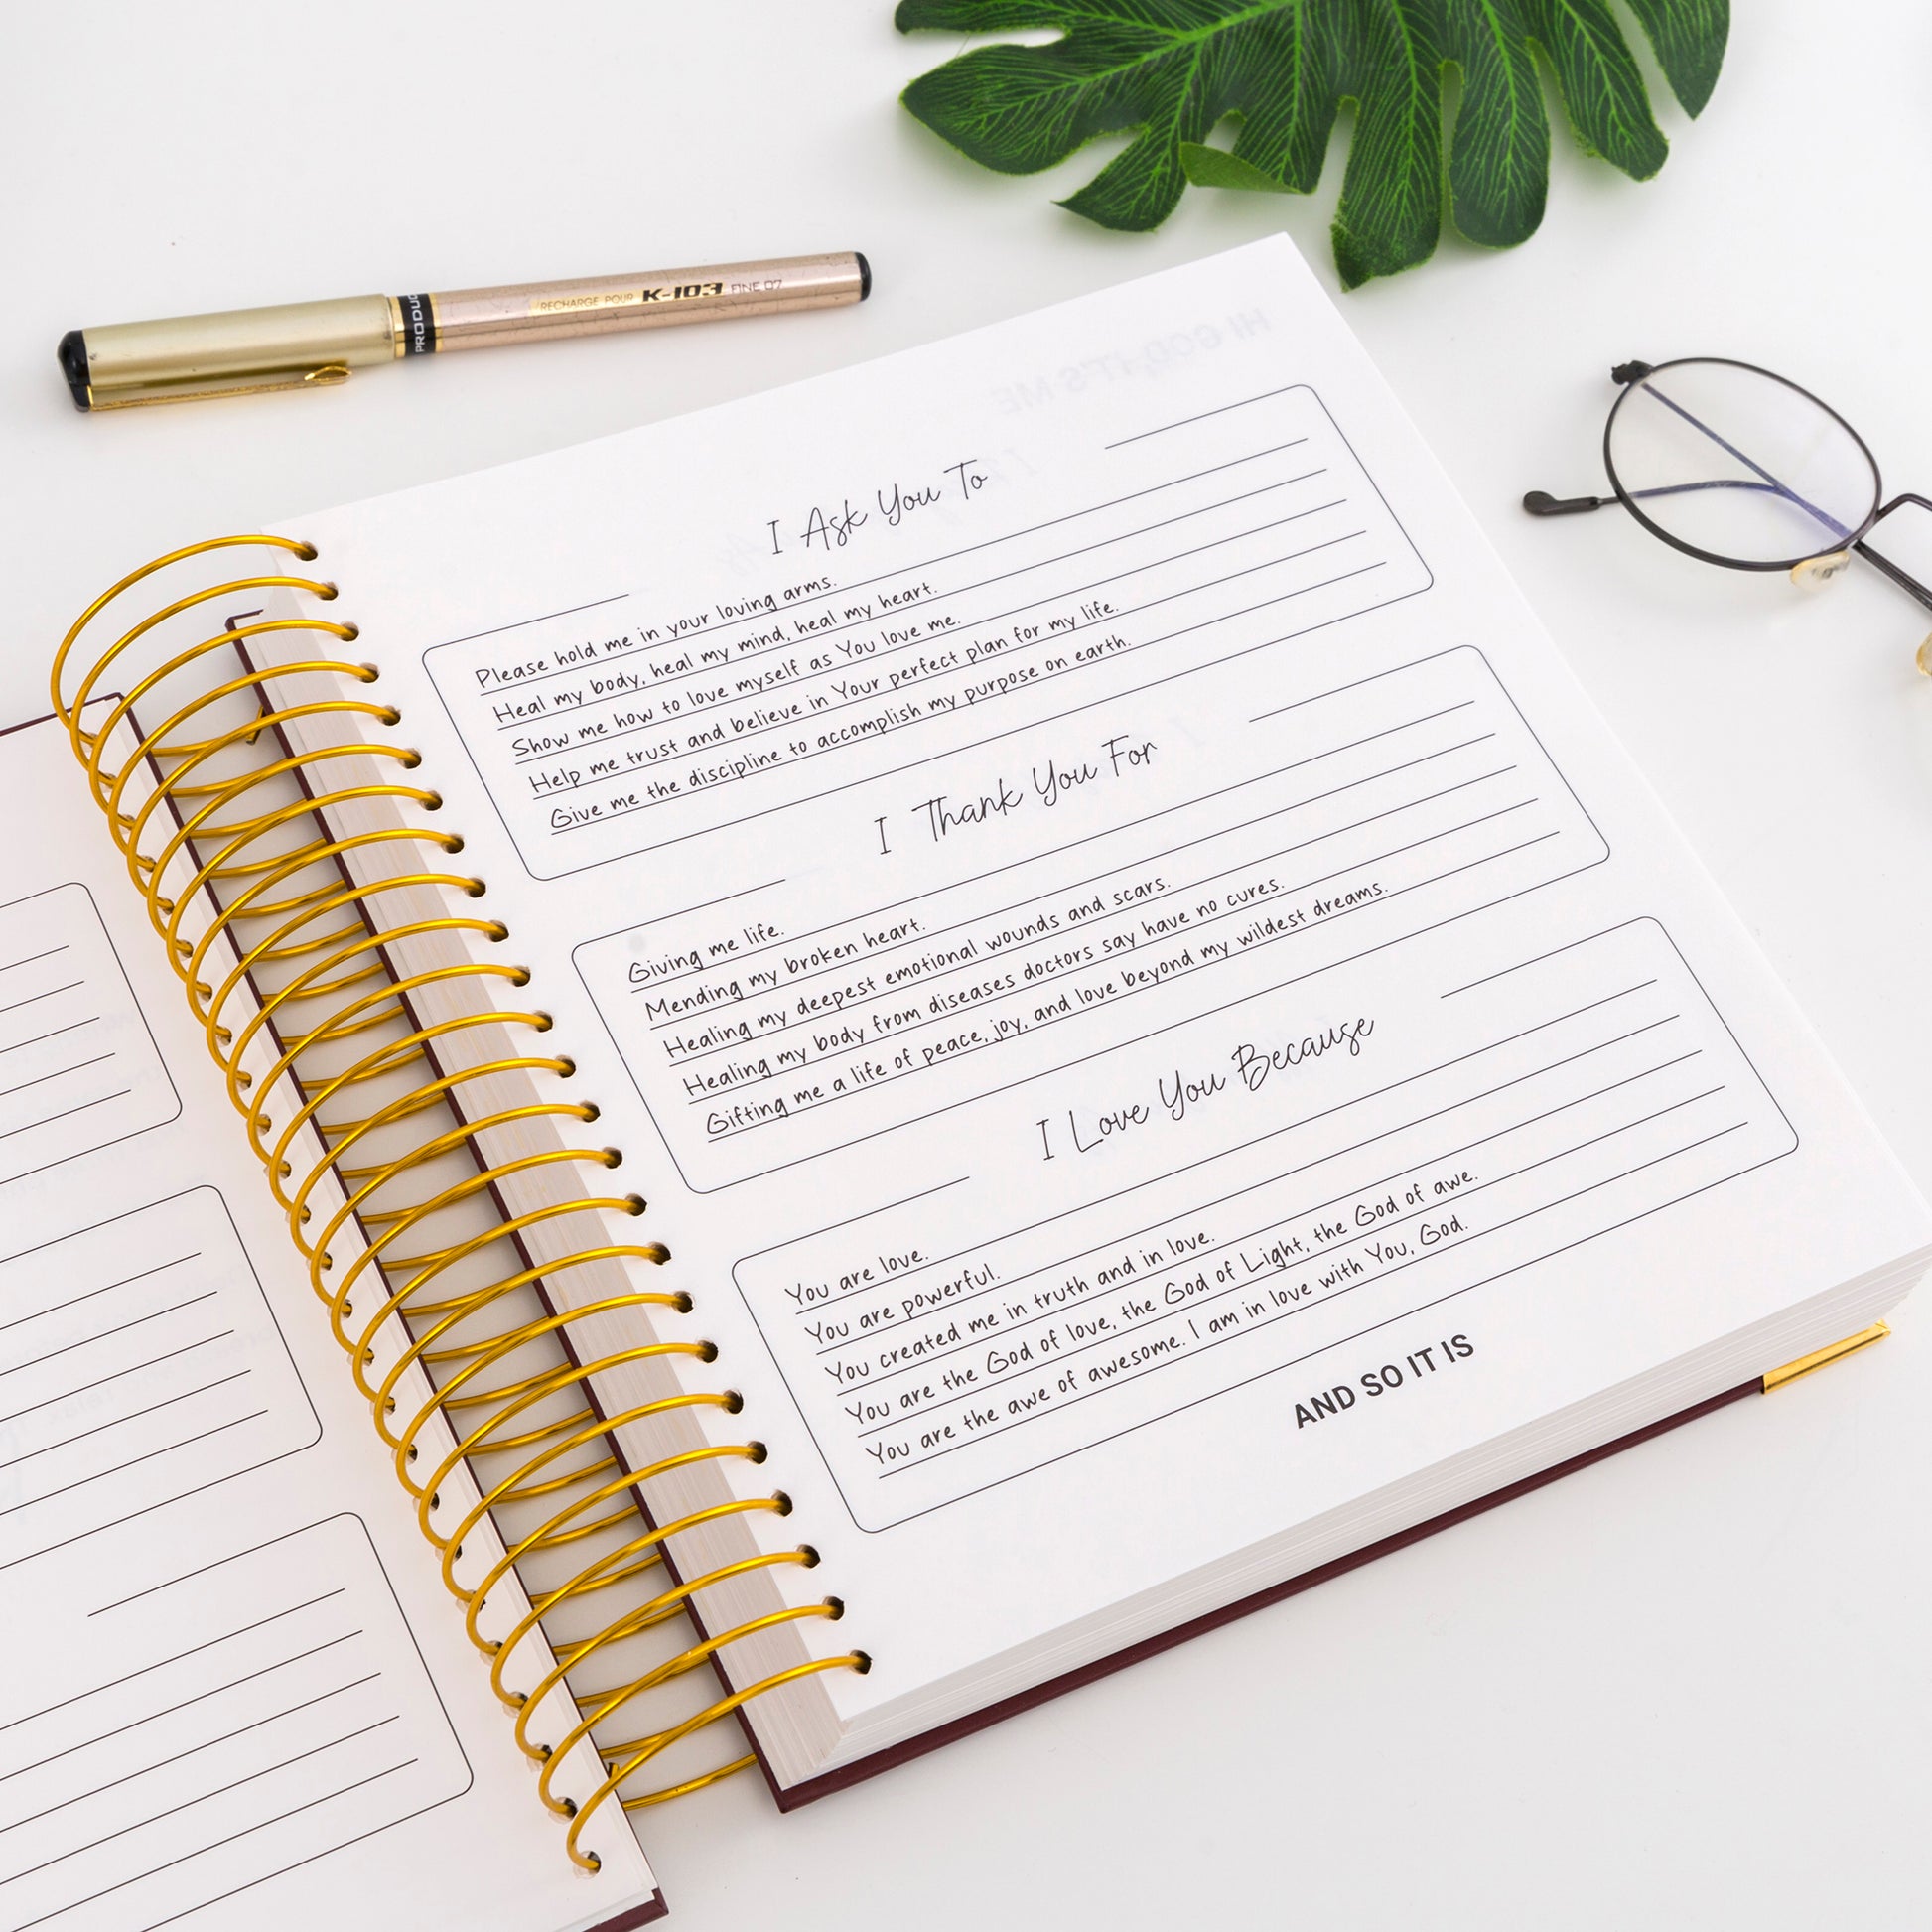 PRODUC
RECHARGE POUR K-103 FINE 07
HI GOD, IT'S ME
I Ask You To
Please hold me in your loving arms.
Heal my body, heal my mind, heal my heart.
Show me how to love myself as You love me.
Help me trust and believe in Your perfect plan for my life.
Give me the discipline to accomplish my purpose on earth.
I Thank You For
Giving me life.
Mending my broken heart.
Healing my deepest emotional wounds and scars.
Healing my body from diseases doctors say have no cures.
Gifting me a life of peace, joy, and love beyond my wildest dreams.
I Love You Because
You are love.
You are powerful.
You created me in truth and in love.
You are the God of love, the God of Light, the God of awe.
You are the awe of awesome. I am in love with You, God.
AND SO IT IS